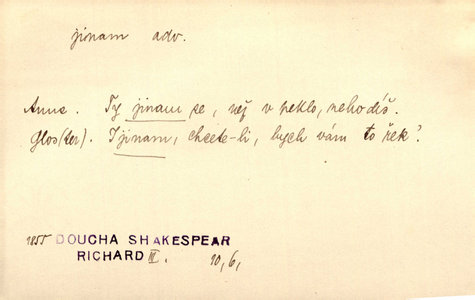 jinam adv.
Anna. Ty jinam se, než v peklo, nehodíš.
Glos(ter). I jinam, chcete-li, bych vám to řek'.
1855 DOUCHA SHAKESPEAR
RICHARD III. 10,6,